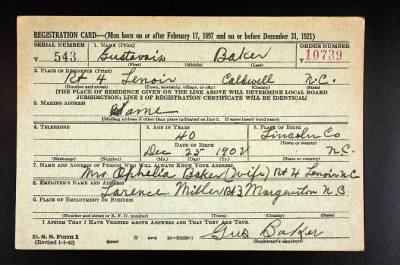 REGISTRATION CARD—(Men born on or after February 17, 1897 and on or before December 31, 1921)
SERIAL NUMBER 1. NAME (Print) ORDER NUMBER
V 543 Gustavais Baker 10739
(First) (Middle) (Last)
2. PLACE OF RESIDENCE (Print)
Rt 4 Lenoir Caldwell N.C.
(Number and street) (Town, township, village, or city) (County) (State)
[THE PLACE OF RESIDENCE GIVEN ON THE LINE ABOVE WILL DETERMINE LOCAL BOARD
JURISDICTION; LINE 2 OF REGISTRATION CERTIFICATE WILL BE IDENTICAL]
3. MAILING ADDRESS
Same
[Mailing address if other than place indicated on line 2. If same insert word same]
4. TELEPHONE 5. AGE IN YEARS 6. PLACE OF BIRTH
40 Lincoln Co
DATE OF BIRTH (Town or county)
Dec 25 1902 N.C.
(Exchange) (Number) (Mo.) (Day) (Yr.) (State or country)
7. NAME AND ADDRESS OF PERSON WHO WILL ALWAYS KNOW YOUR ADDRESS
Mrs Ophelia Baker (wife) Rt 4 Lenoir N.C.
8. EMPLOYER'S NAME AND ADDRESS
Larence Miller Rt 3 Morganton N.C.
9. PLACE OF EMPLOYMENT OR BUSINESS
(Number and street or R. F. D. number) (Town) (County) (State)
I AFFIRM THAT I HAVE VERIFIED ABOVE ANSWERS AND THAT THEY ARE TRUE.
D. S. S. Form 1 Gus Baker
(Revised 1-1-42) (over) (Registrant's signature)